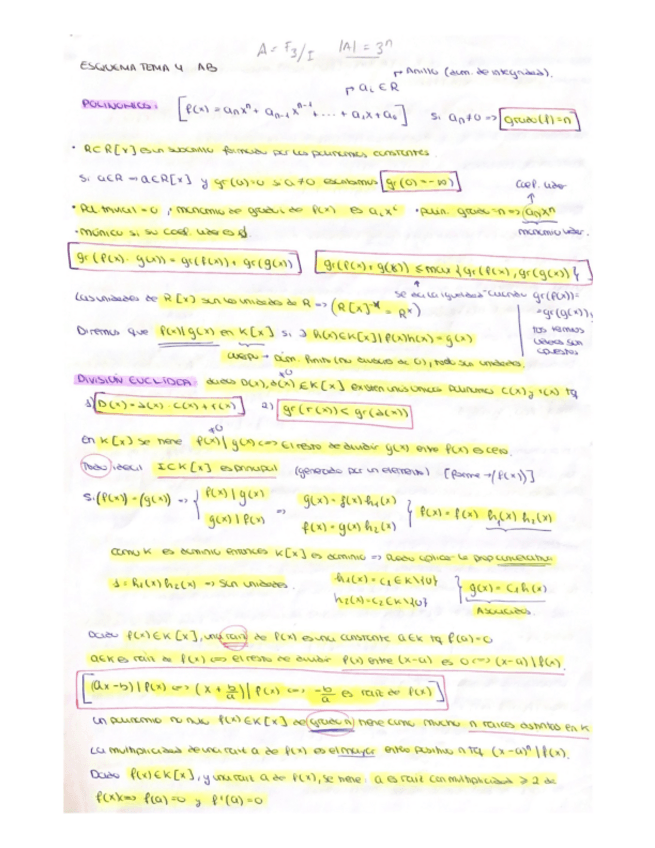 A = F3/I |A| = 3^n
ESQUEMA TEMA 4 AB
→ Anillo (dom. de integridad).
→ ai ∈ R
POLINOMIOS: [P(x) = anx^n + an-1x^n-1 + ... + a1x + a0] Si an≠0 => grado(f)=n
· R⊂R[x] es un subanillo formado por los polinomios constantes.
Si a∈R → a∈R[x] y gr(a)=0 si a≠0 escribimos gr(0)=-∞
coef. líder
· Pol. trivial = 0 ; monomio de grado i de P(x) es aix^i · polin. grado=n => anx^n
monomio líder.
· mónico si su coef. líder es 1
gr(P(x)·g(x)) = gr(P(x)) + gr(g(x)) gr(P(x)+g(x)) ≤ {gr(P(x), gr(g(x))}
se da la igualdad cuando gr(P(x))=
Las unidades de R[x] son las unidades de R → (R[x]^* = R^*)
=gr(g(x)),
Diremos que P(x)|g(x) en K[x] si ∃ h(x)∈K[x] | P(x)h(x) = g(x)
los términos líderes son opuestos
cuerpo → (no divisores de 0), todo son unidades.
≠0
DIVISIÓN EUCLÍDEA: dados D(x), d(x) ∈ K[x] existen unos únicos polinomios c(x) y r(x) tq
1) D(x) = d(x)·c(x)+r(x) 2) gr(r(x)) < gr(d(x))
≠0
En K[x] se tiene P(x)|g(x) <=> El resto de dividir g(x) entre P(x) es cero.
Todo ideal I⊂K[x] es principal (generado por un elemento) [forma → (P(x))]
Si (P(x)) = (g(x)) => { P(x)|g(x) => g(x) = f(x)h1(x) } P(x) = P(x) h1(x) h2(x)
g(x)|P(x) f(x) = g(x)h2(x)
como K es dominio entonces K[x] es dominio => puedo aplicar la prop cancelativa
1 = h1(x)h2(x) => son unidades. h1(x) = c1∈K\{0} } g(x) = c1
h2(x) = c2∈K\{0} Asociados.
Dado P(x)∈K[x], una raíz de P(x) es una constante a∈K tq P(a)=0
a∈K es raíz de P(x) <=> El resto de dividir P(x) entre (x-a) es 0 <=> (x-a)|P(x).
(ax-b)|P(x) <=> (x+b/a)|P(x) <=> -b/a es raíz de P(x)
Un polinomio no nulo P(x)∈K[x] de grado n tiene como mucho n raíces distintas en K
La multiplicidad de una raíz a de P(x) es el mayor entero positivo n tq (x-a)^n|P(x).
Dado P(x)∈K[x], y una raíz a de P(x), se tiene: a es raíz con multiplicidad ≥ 2 de
P(x) <=> P(a)=0 y P'(a)=0